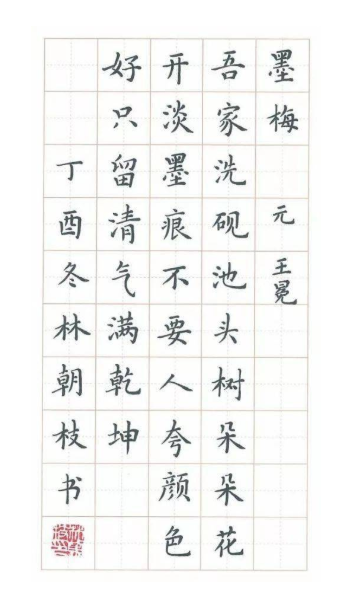 墨梅 元 王冕
吾家洗砚池头树朵朵花
开淡墨痕不要人夸颜色
好只留清气满乾坤
丁酉冬林朝枝书